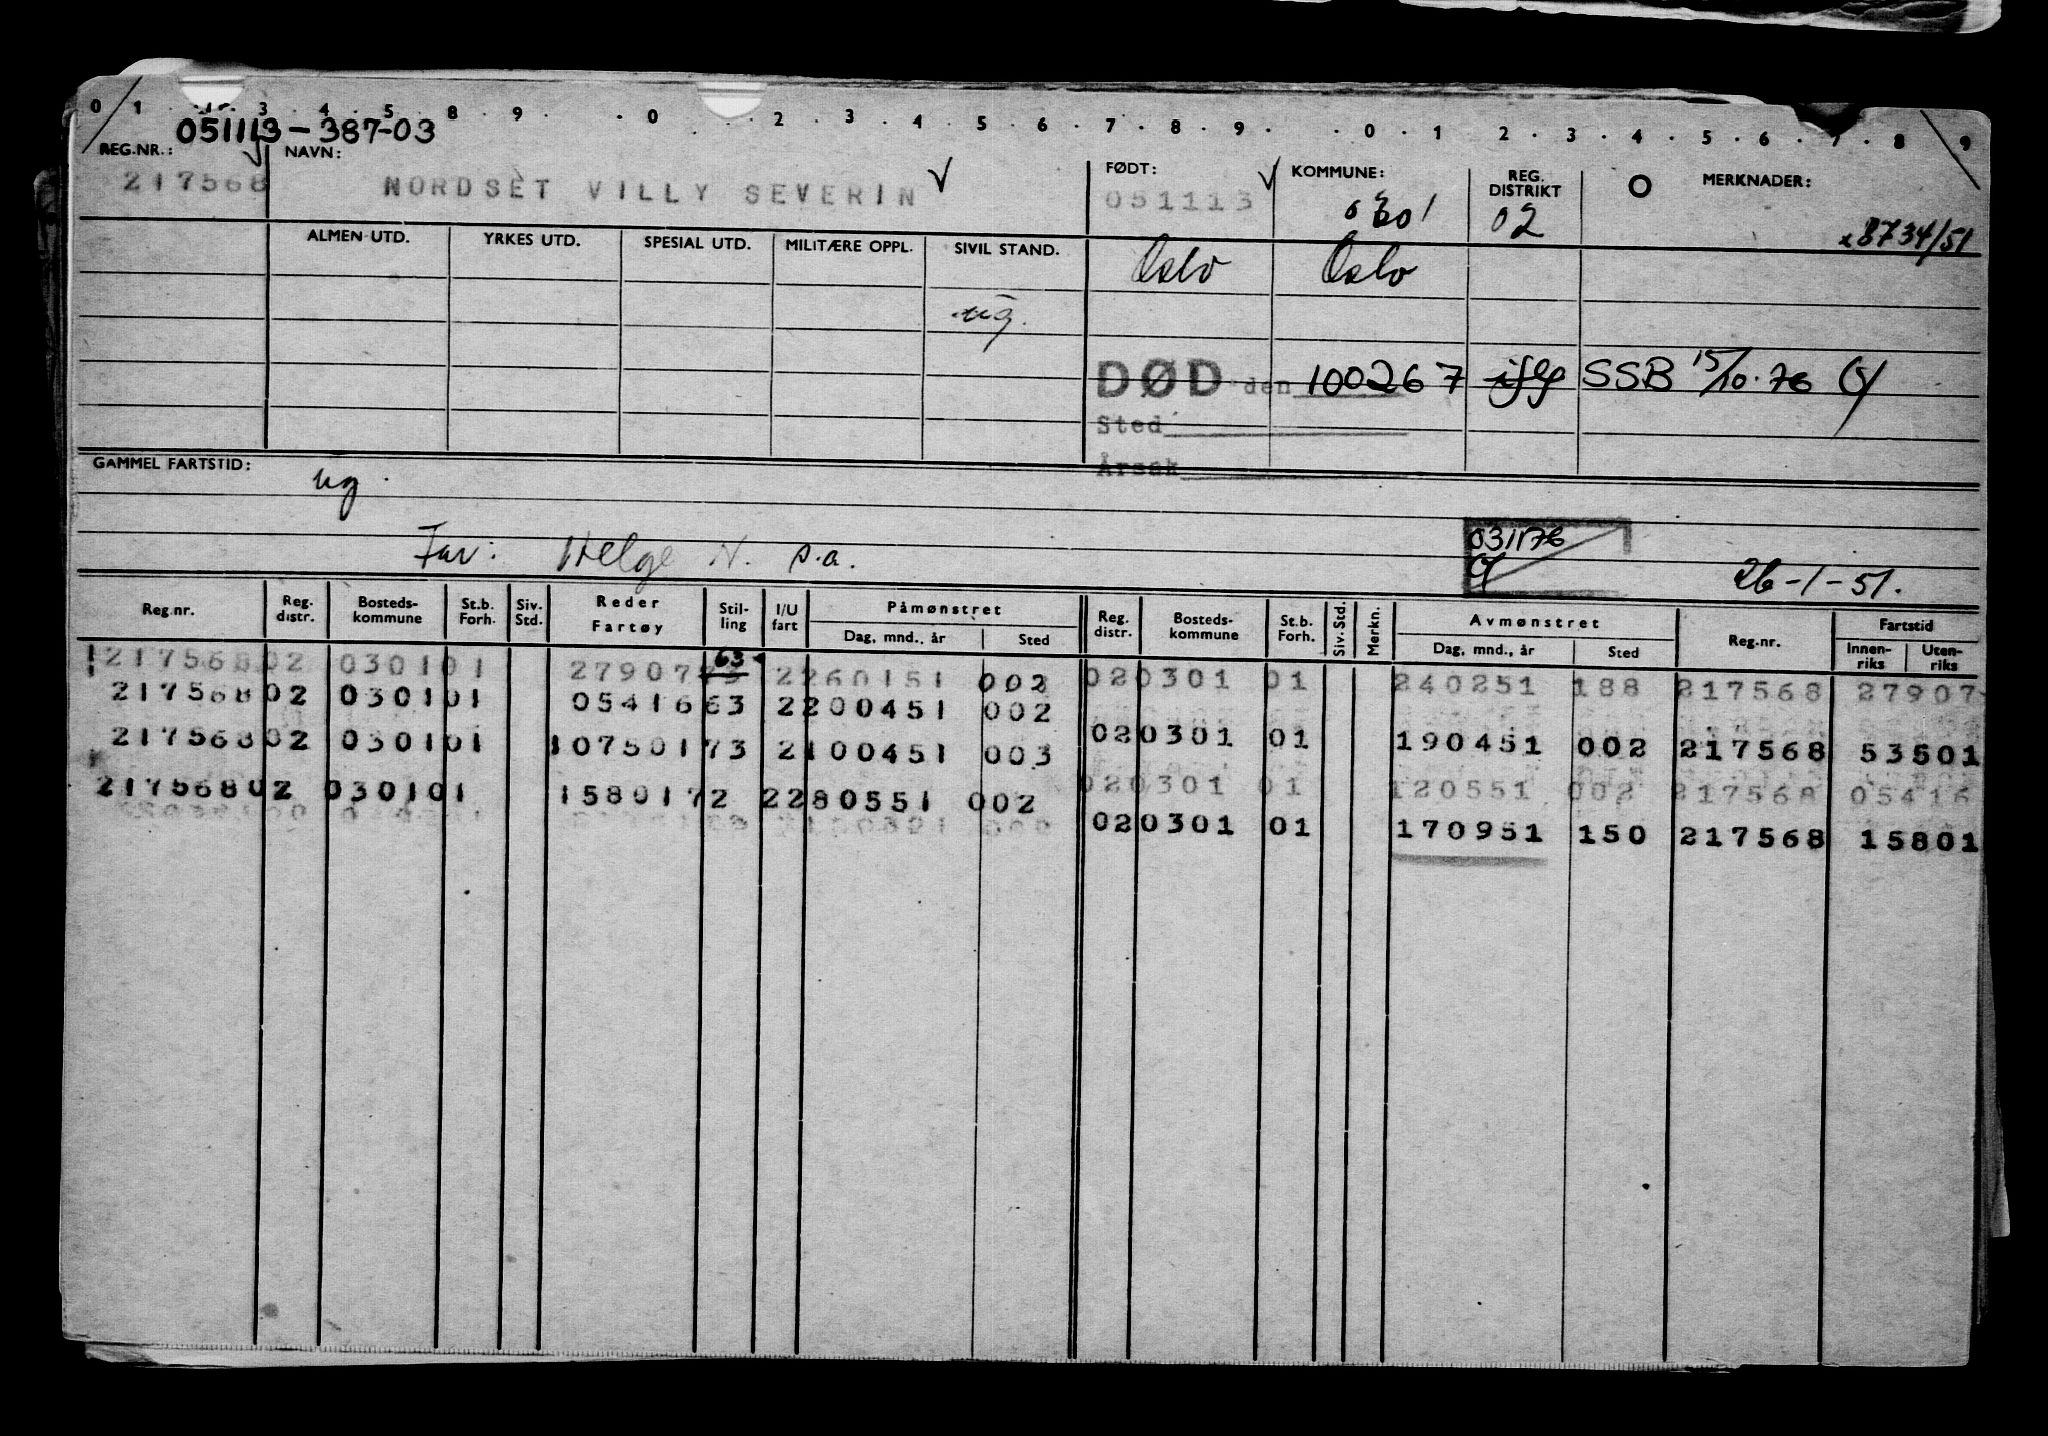 0 1 3 4 5 8 9 . 0 . 2 . 3 . 4 . 5 . 6 . 7 . 8 . 9 . . 0 . 1 . 2 . 3 . 4 . 5 . 6 . 7 . 8 9
051113-387-03
REG.NR.: NAVN: FØDT: KOMMUNE: REG. DISTRIKT O MERKNADER:
217568 NORDSET VILLY SEVERIN 051113 0301 02
x8734/51
ALMEN UTD. YRKES UTD. SPESIAL UTD. MILITÆRE OPPL. SIVIL STAND. Oslo Oslo
ug.
DØD den 100267 iflg SSB 15/10.76
Sted
Årsak
GAMMEL FARTSTID:
ug.
Far: Helge N. s.a.
031176
26-1-51.
Reg.nr. Reg. distr. Bosteds-kommune St.b. Forh. Siv. Std. Reder Fartøy Stil-ling I/U fart Påmønstret Dag, mnd., år Sted Reg. distr. Bosteds-kommune St.b. Forh. Siv. Std. Merkn. Avmønstret Dag, mnd., år Sted Reg.nr. Fartstid Innen-riks Uten-riks
63
217568 02 0301 01 27907 73 2 260151 002 02 0301 01 240251 188 217568 27907
217568 02 0301 01 05416 63 2 200451 002
217568 02 0301 01 107501 73 2 100451 003 02 0301 01 190451 002 217568 53501
02 0301 01 120551 002 217568 05416
217568 02 0301 01 15801 72 2 280551 002
02 0301 01 170951 150 217568 15801